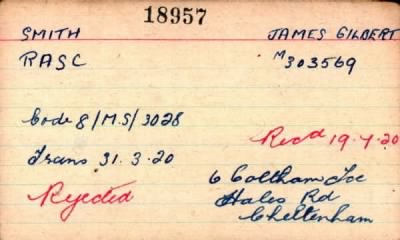 18957
SMITH JAMES GILBERT
RASC M303569
Code 8/M.S/3028
Recd 19.4.20
Trans 31.3.20
6 Coltham Tce
Rejected
Hales Rd
Cheltenham